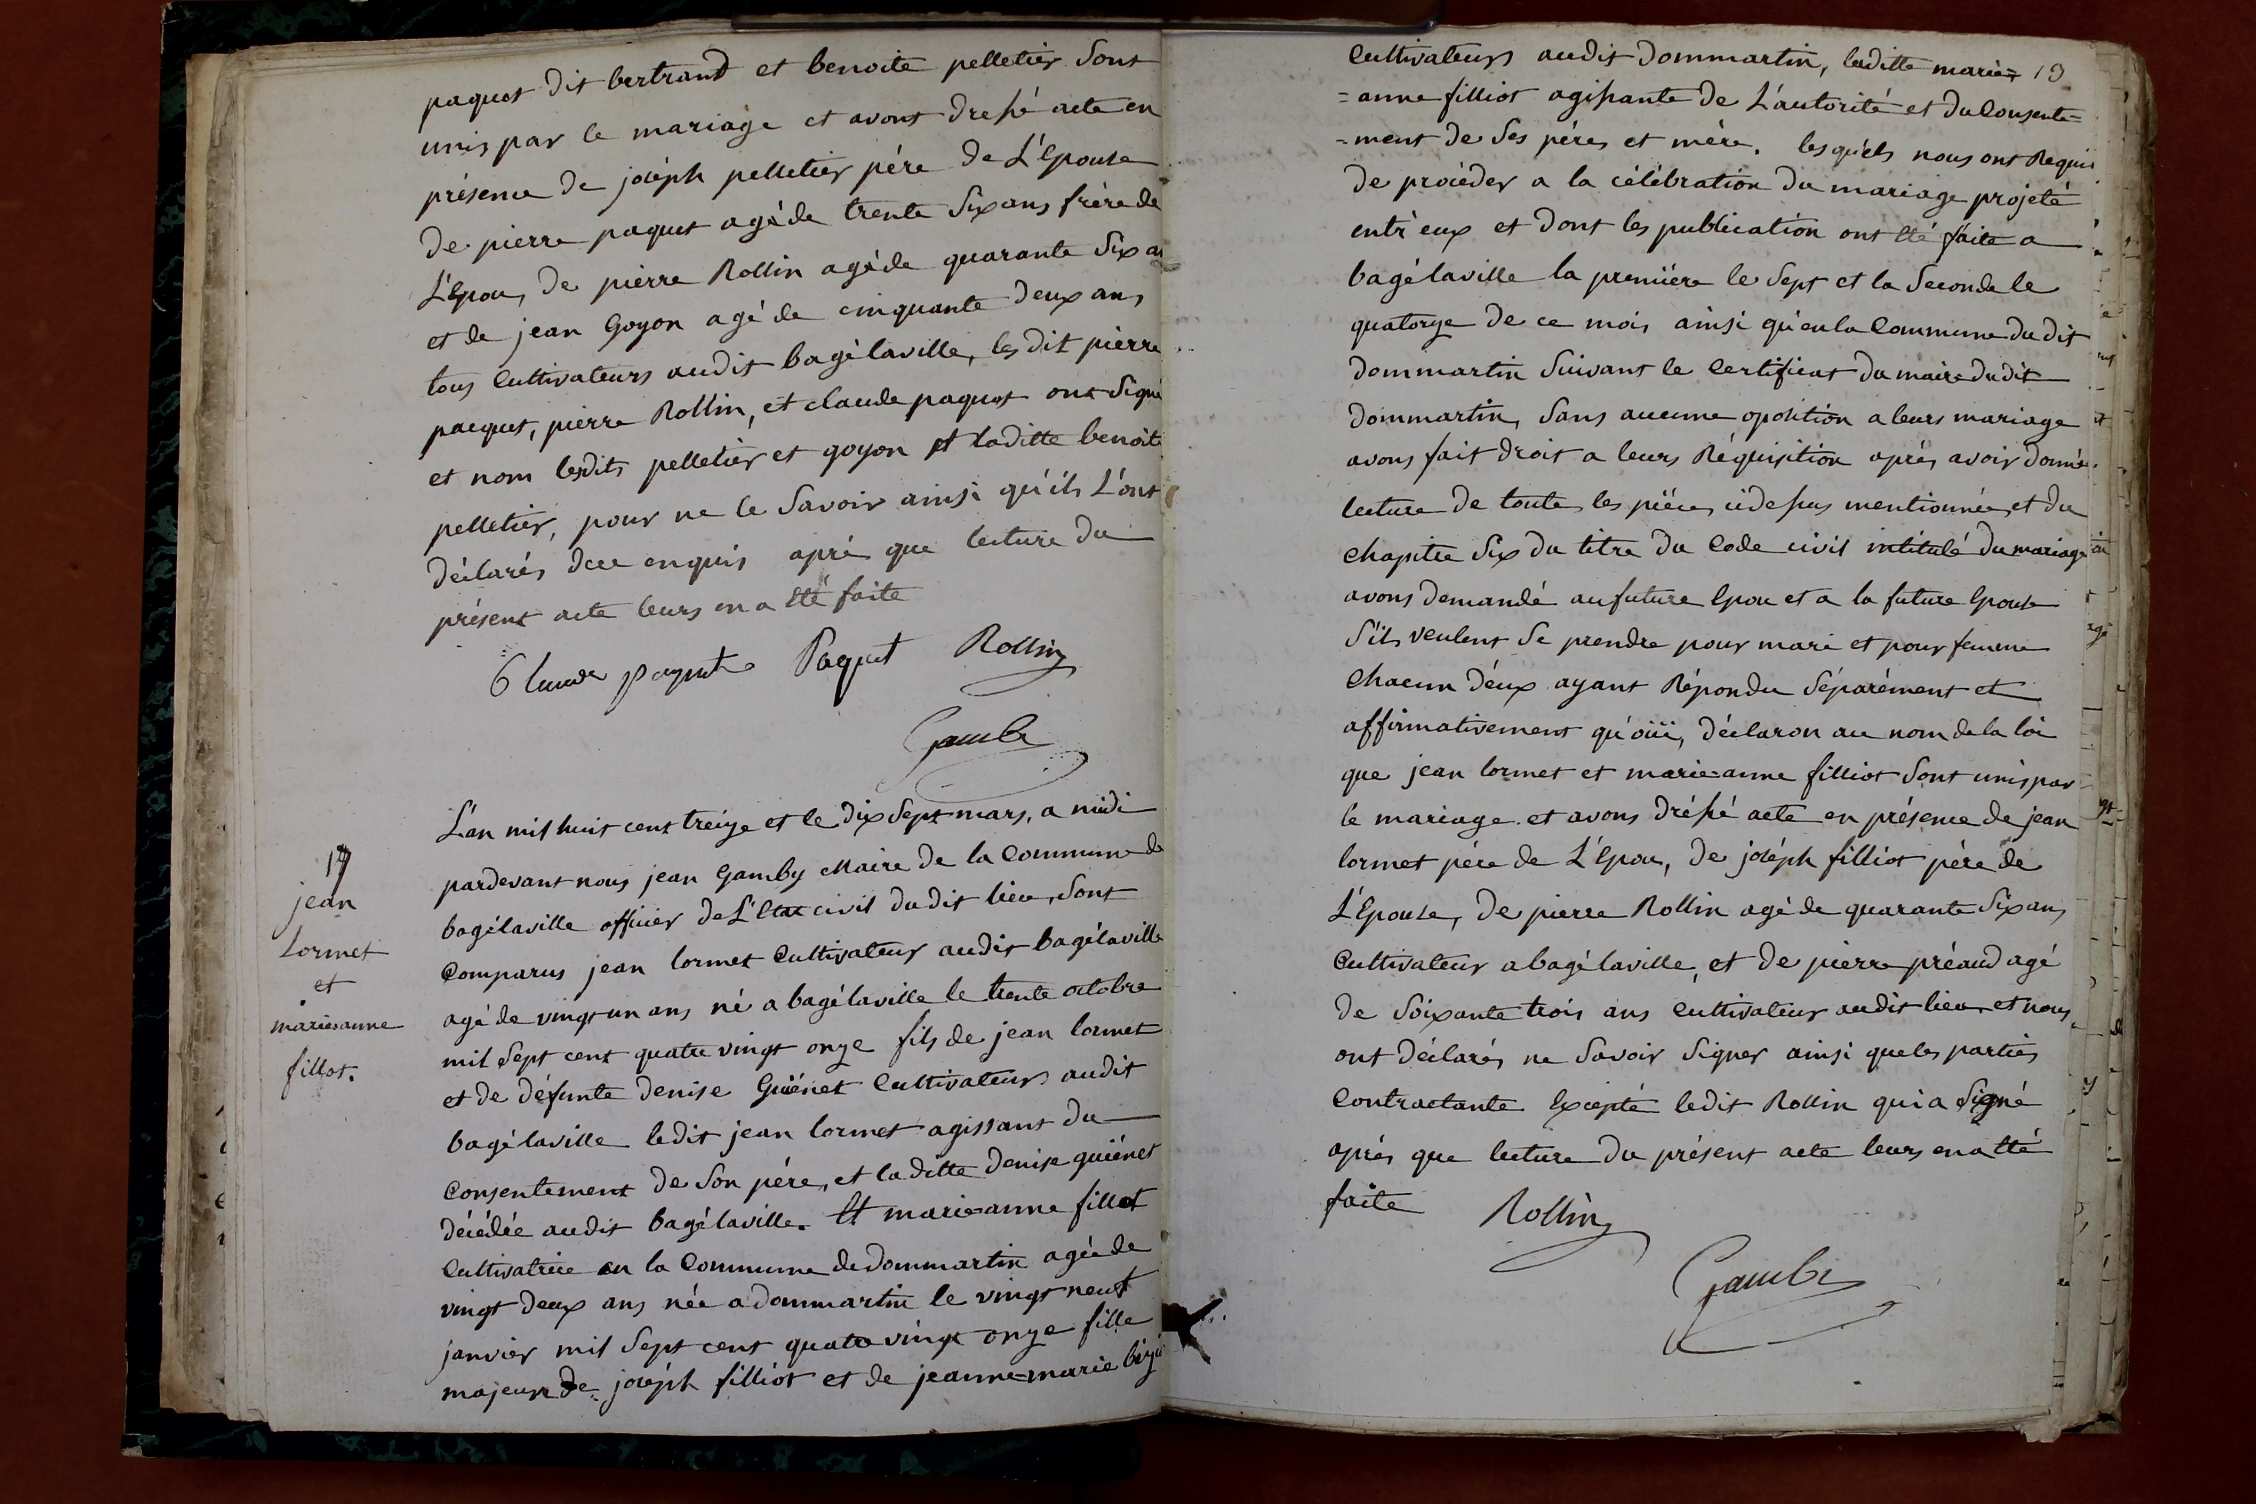 paquet dit bertrand et benoite pelletier Sont
unis par le mariage et avons dressé acte en
présence de joséph pelletier pére de L'Epouse
de pierre paquet agé de trente Six ans frére de
L'Epou, de pierre Rollin agé de quarante Six an
et de jean Goyon agé de cinquante deux ans
tous Cultivateurs audit bagélaville, les dit pierre
pacquet, pierre Rollin, et claude paquet ont Signé
et nom lesdits pelletier et goyon et laditte benoite
pelletier, pour ne le Savoir ainsi qu'ils L'ont
déclarés dee enquis aprés que lecture du
présent acte leurs en a été faite
Claude paquet Paquet Rollin
Gambi
17
jean
Lormet
et
marie=anne
fillot.
L'an mil huit cent treize et le dix Sept mars, a midi
pardevant nous jean Gamby Maire de la Commune de
bagélaville officier de L'Etat civil dudit lieu, Sont
Comparus jean lormet Cultivateur audit bagélaville
agé de vingt un ans né a bagélaville le trente octobre
mil Sept cent quatre vingt onze fils de jean lormet
et de défunte denise Guiénet Cultivateurs audit
bagélaville ledit jean lormet agissant du
Consentement de Son pére, et laditte denise guiénet
décédée audit bagélaville. Et marie=anne fillot
Cultivatrice en la Commune de dommartin agée de
vingt deux ans née a dommartin le vingt neuf
janvier mil Sept cent quatre vingt onze fille
majeure de joséph filliot et de jeanne=marie
Cultivateurs audit dommartin, laditte marie= 19
=anne filliot agissante de L'autorité et du Consente=
=ment de Ses péres et mére. lesquels nous ont Requis
de procéder a la célébration du mariage projeté
entr'eux et dont les publication ont été faite a
bagélaville la premiére le Sept et la Seconde le
quatorze de ce mois ainsi qu'en la Commune du dit
dommartin Suivant le Certificat du maire dudit
dommartin, Sans aucune oposition a leurs mariage
avons fait droit a leurs Réquisition aprés avoir donné
lecture de toute les piéces cidessus mentionnée, et du
chapitre Six du titre du Code civil intitulé du mariage
avons demandé au future Epou et a la future Epouse
S'ils veulent Se prendre pour mari et pour femme
Chacun d'éux ayant Répondu Séparément et
affirmativement qu'oüi, déclaron au nom de la loi
que jean lormet et marie=anne filliot Sont unis par
le mariage et avons dréssé acte en présence de jean
lormet pére de L'Epou, de joséph filliot pére de
L'Epouse, de pierre Rollin agé de quarante Six ans
Cultivateur a bagélaville, et de pierre préaud agé
de Soixante trois ans Cultivateur audit lieu et nous
ont déclarés ne Savoir Signer ainsi que les parties
Contractante Excepté ledit Rollin qui a Signé
aprés que lecture du présent acte leurs en a été
faite Rollin
Gambi